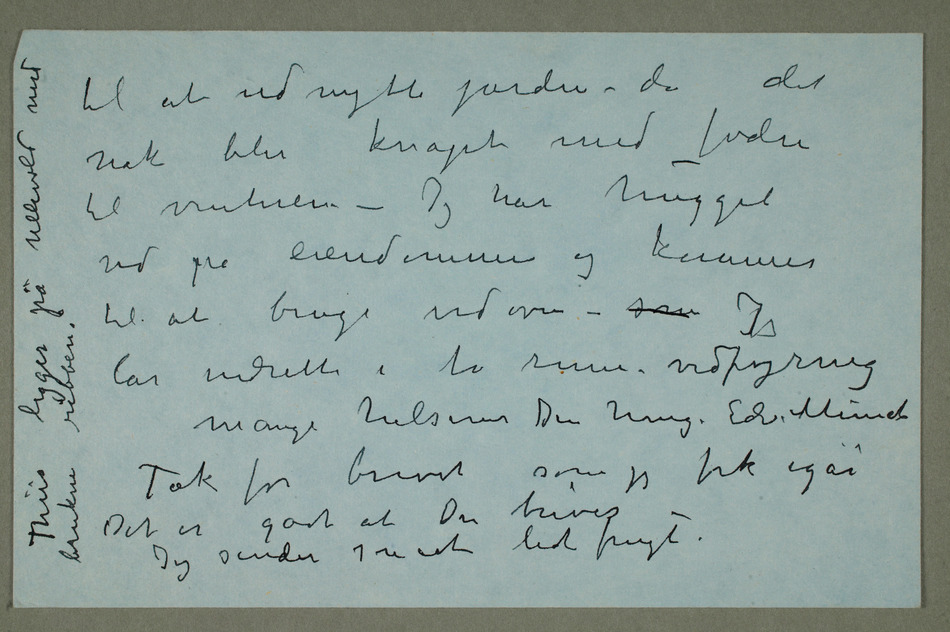 til at udnytte jorden – da det
nok blir knapt med föden
til vinteren – Jeg har hugget
ved på eiendommen og kommer
til at bruge vedovn – som Jeg
lar indrette i to rum. vedfyrring
mange hilsener Din heng. Edv. Munch
Tak for brevet som jeg fik igår
Det er godt at Du trives –
Jeg sender snart lidt frugt.
Thiis ligger på Ullevold med
brukne ribben.